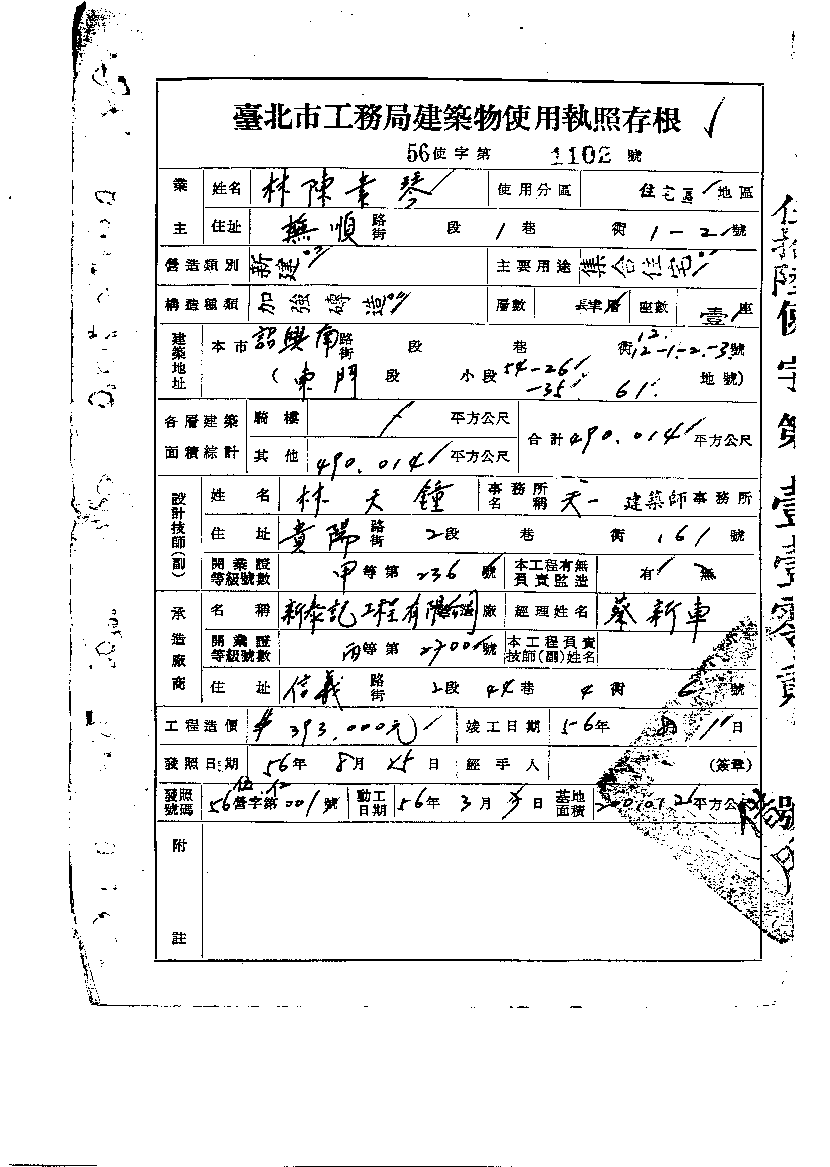 臺北市工務局建築物使用執照存根
56使字第 1102 號
業主 姓名 林陳素琴 使用分區 住宅區 地區
住址 撫順 路街 段 1 巷 衖 1-2 號
營造類別 新建 主要用途 集合住宅
構造種類 加強磚造 層數 層 座數 壹 座
建築地址 本市 紹興南 路街 段 巷 衖 12-1-2-3 號
(東門 段 小段 54-26 -35 61 地號)
各層建築面積綜計 騎樓 平方公尺 合計 490.014 平方公尺
其他 490.014 平方公尺
設計技師(副) 姓名 林天鐘 事務所名稱 天一 建築師事務所
住址 貴陽 路街 2段 巷 衖 161 號
開業證等級號數 甲等第 236 號 本工程有無負責監造 有 無
承造廠商 名稱 新泰記工程有限公司 廠 經理姓名 蔡新車
開業證等級號數 丙等第 2700 號 本工程負責技師(副)姓名
住址 信義 路街 2段 44巷 4衖 6 號
工程造價 393,000元 竣工日期 56年 11日
發照日期 56年 8月 25日 經手人 (簽章)
發照號碼 56營字第001號 動工日期 56年 3月 日 基地面積 平方公
附註
伍拾陸使字第壹壹零貳
號